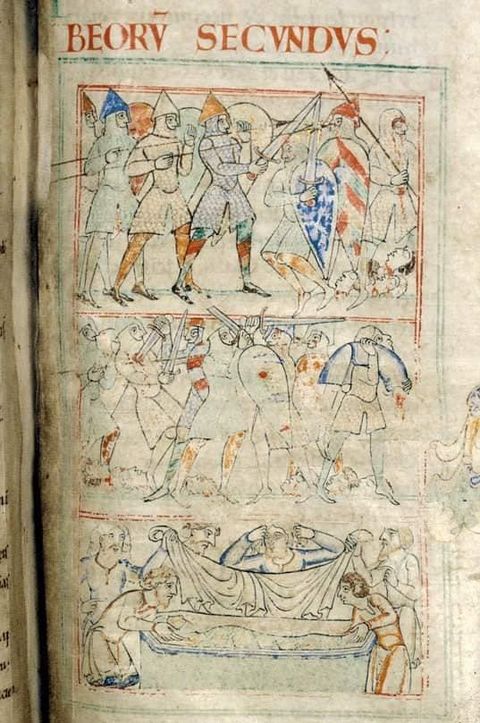 BEORV̄ SECVNDVS: